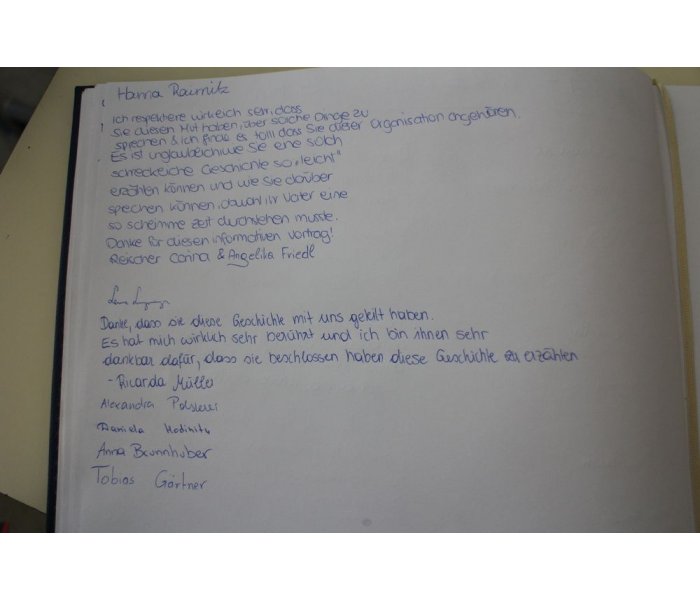 Hanna Raimitz
Ich respektiere wirklich sehr, dass
Sie diesen Mut haben, über solche Dinge zu
sprechen & ich finde es toll dass Sie dieser Organisation angehören.
Es ist unglaublich wie Sie eine solch
schreckliche Geschichte so „leicht"
erzählen können und wie Sie darüber
sprechen können, obwohl ihr Vater eine
so schlimme Zeit durchstehen musste.
Danke für diesen informativen Vortrag!
Reischer Corina & Angelika Friedl
Danke, dass sie diese Geschichte mit uns geteilt haben.
Es hat mich wirklich sehr berührt und ich bin ihnen sehr
dankbar dafür, dass sie beschlossen haben diese Geschichte zu erzählen
- Ricarda Müller
Alexandra
Daniela
Anna Brunnhuber
Tobias Gärtner